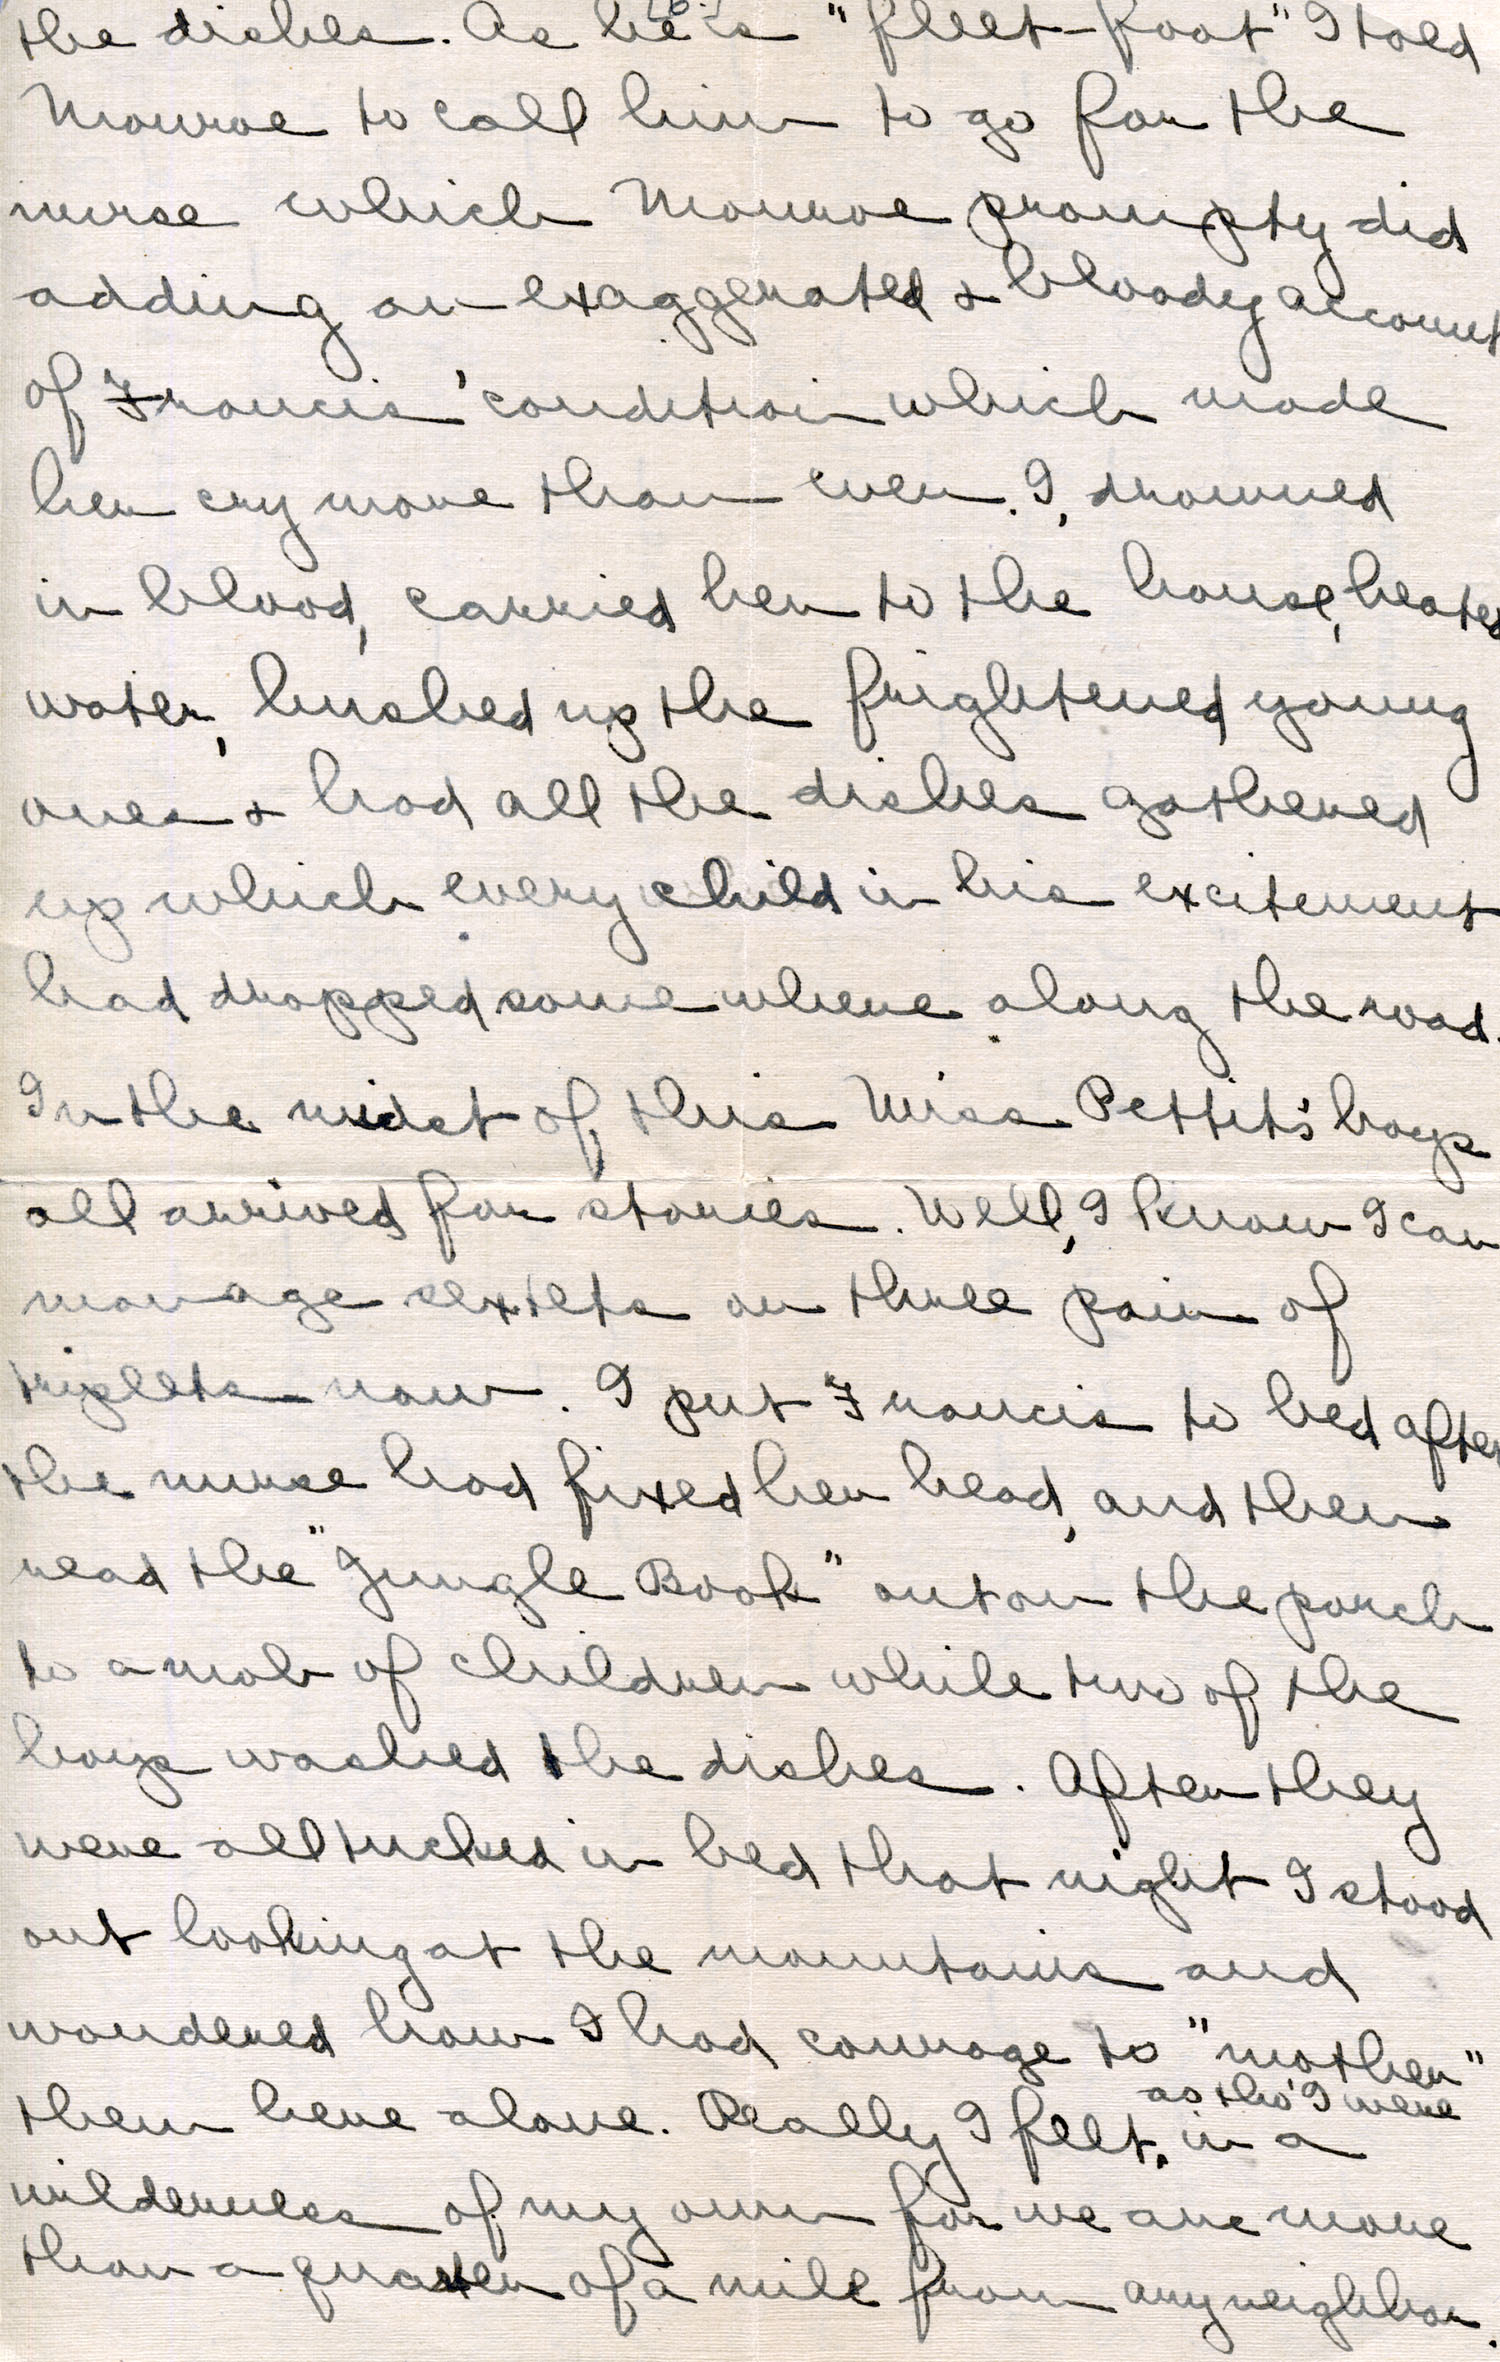 the dishes. As he is "fleet-foot" I told
Monroe to call him to go for the
nurse which Monroe prompty did
adding an exaggerated & bloody account
of Francis' condition which made
her cry more than ever. I, drowned
in blood, carried her to the house, heated
water, hushed up the frightened young
ones & had all the dishes gathered
up which every child in his excitement
had dropped some where along the road.
In the midst of this Miss Pettit's boys
all arrived for stories. Well, I know I can
manage sextets or three pair of
triplets now. I put Francis to bed after
the nurse had fixed her head, and then
read the "Jungle Book" out on the porch
to a mob of children while two of the
boys washed the dishes. After they
were all tucked in bed that night I stood
out looking at the mountains and
wondered how I had courage to "mother"
them here alone. Really I felt as tho' I were in a
wilderness of my own for we are more
than a quarter of a mile from any neighbor.